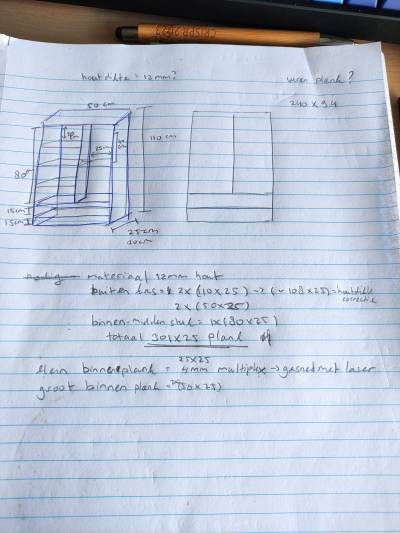 houtdikte = 12mm?
uren plank?
240 x 94
50 cm
110 cm
25cm
80cm
15cm
15cm
25cm
10cm
materiaal 12mm hout
buiten kas = 2x (110x25) -> 2 (~ 108x25) = houtdikte correctie
2x (50x25)
binnen-midden stuk = 1x (80x25)
totaal 301x25 plank
25x25
klein binnenplank = 4mm multiplex -> gesned met laser
groot binnen plank = 2x(50x25)